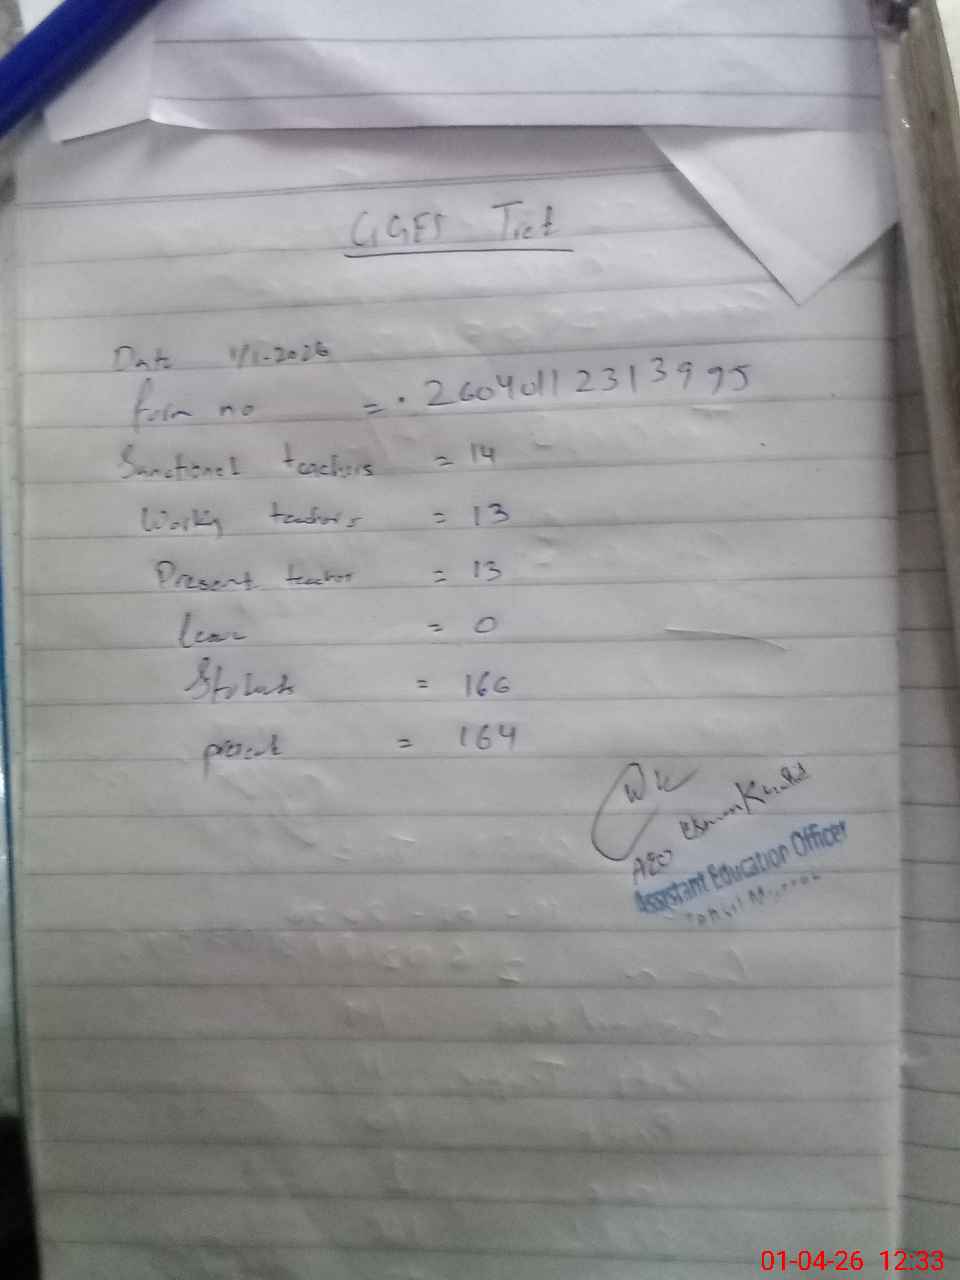 GGES Tret
Date 1/1-2026
form no = . 26040112313995
Sanctioned teachers = 14
Working teachers = 13
Present teacher = 13
leave = 0
Students = 166
present = 164
AEO
Assistant Education Officer
01-04-26 12:33